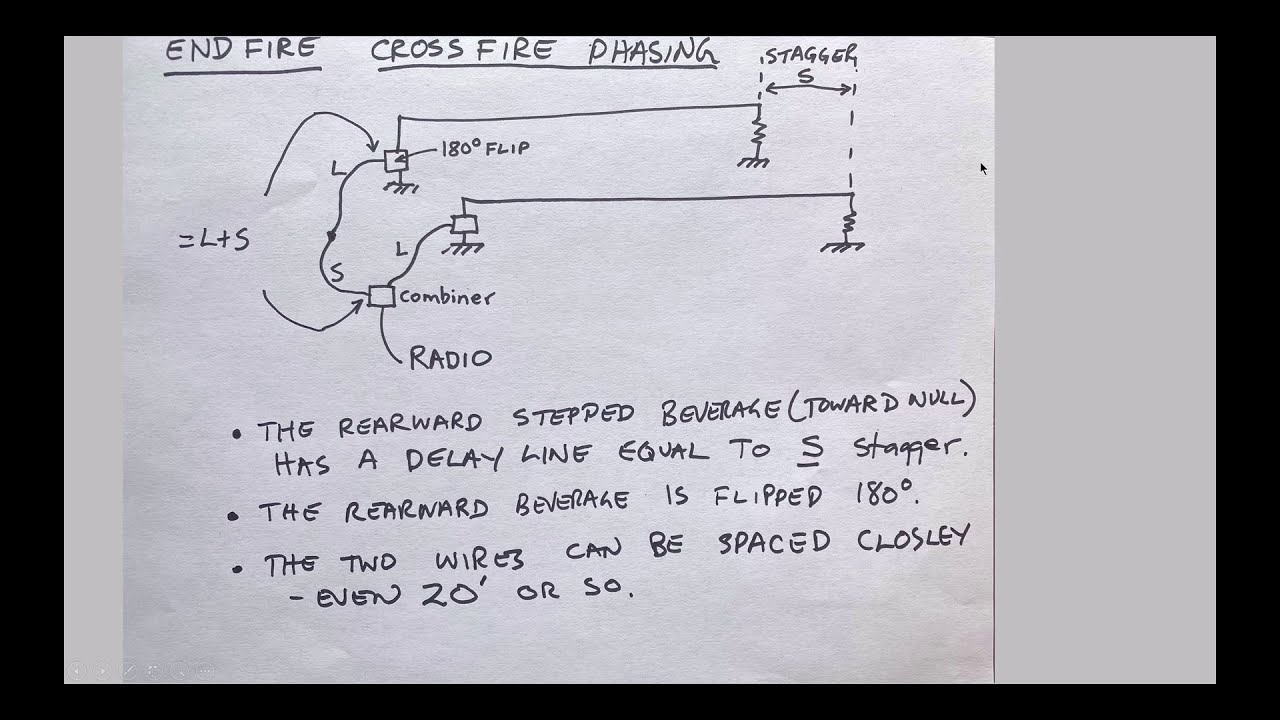 END FIRE CROSSFIRE PHASING
STAGGER
S
180° FLIP
L
= L+S
L
S
Combiner
RADIO
• THE REARWARD STEPPED BEVERAGE (TOWARD NULL)
HAS A DELAY LINE EQUAL TO S stagger.
• THE REARWARD BEVERAGE IS FLIPPED 180°.
• THE TWO WIRES CAN BE SPACED CLOSLEY
- EVEN 20' OR SO.